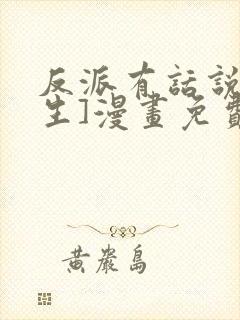 反派有話說
生]漫畫免費
黃巖島